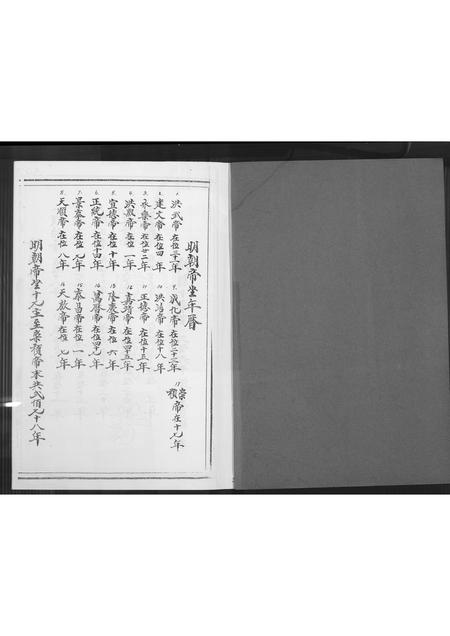 明朝帝坐年曆
1. 洪武帝 在位三十一年
2. 建文帝 在位四年
3. 永樂帝 在位廿二年
4. 洪熙帝 在位一年
5. 宣德帝 在位十年
6. 正統帝 在位十四年
7. 景泰帝 在位九年
8. 天順帝 在位八年
9. 成化帝 在位二十三年
10. 洪治帝 在位十八年
11. 正德帝 在位十五年
12. 嘉靖帝 在位四五年
13. 隆慶帝 在位六年
14. 萬曆帝 在位四七年
15. 泰昌帝 在位一年
16. 天啟帝 在位七年
17. 崇禎帝在十七年
明朝帝坐十元宝至崇禎帝末共弍佰七十八年